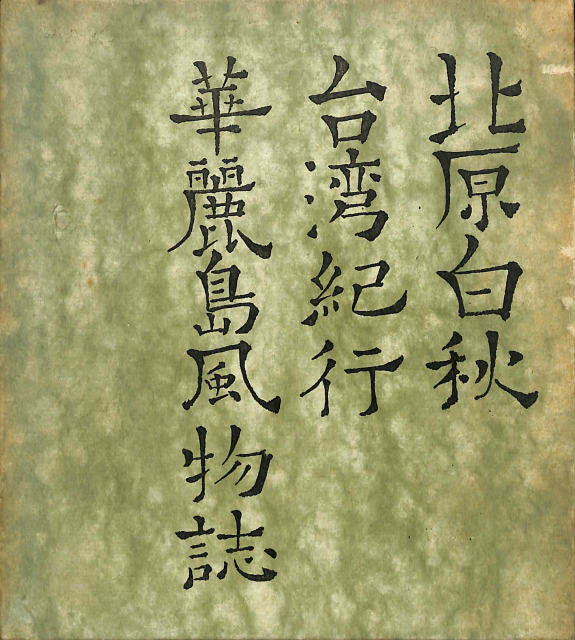 北原白秋
台湾紀行
華麗島風物誌